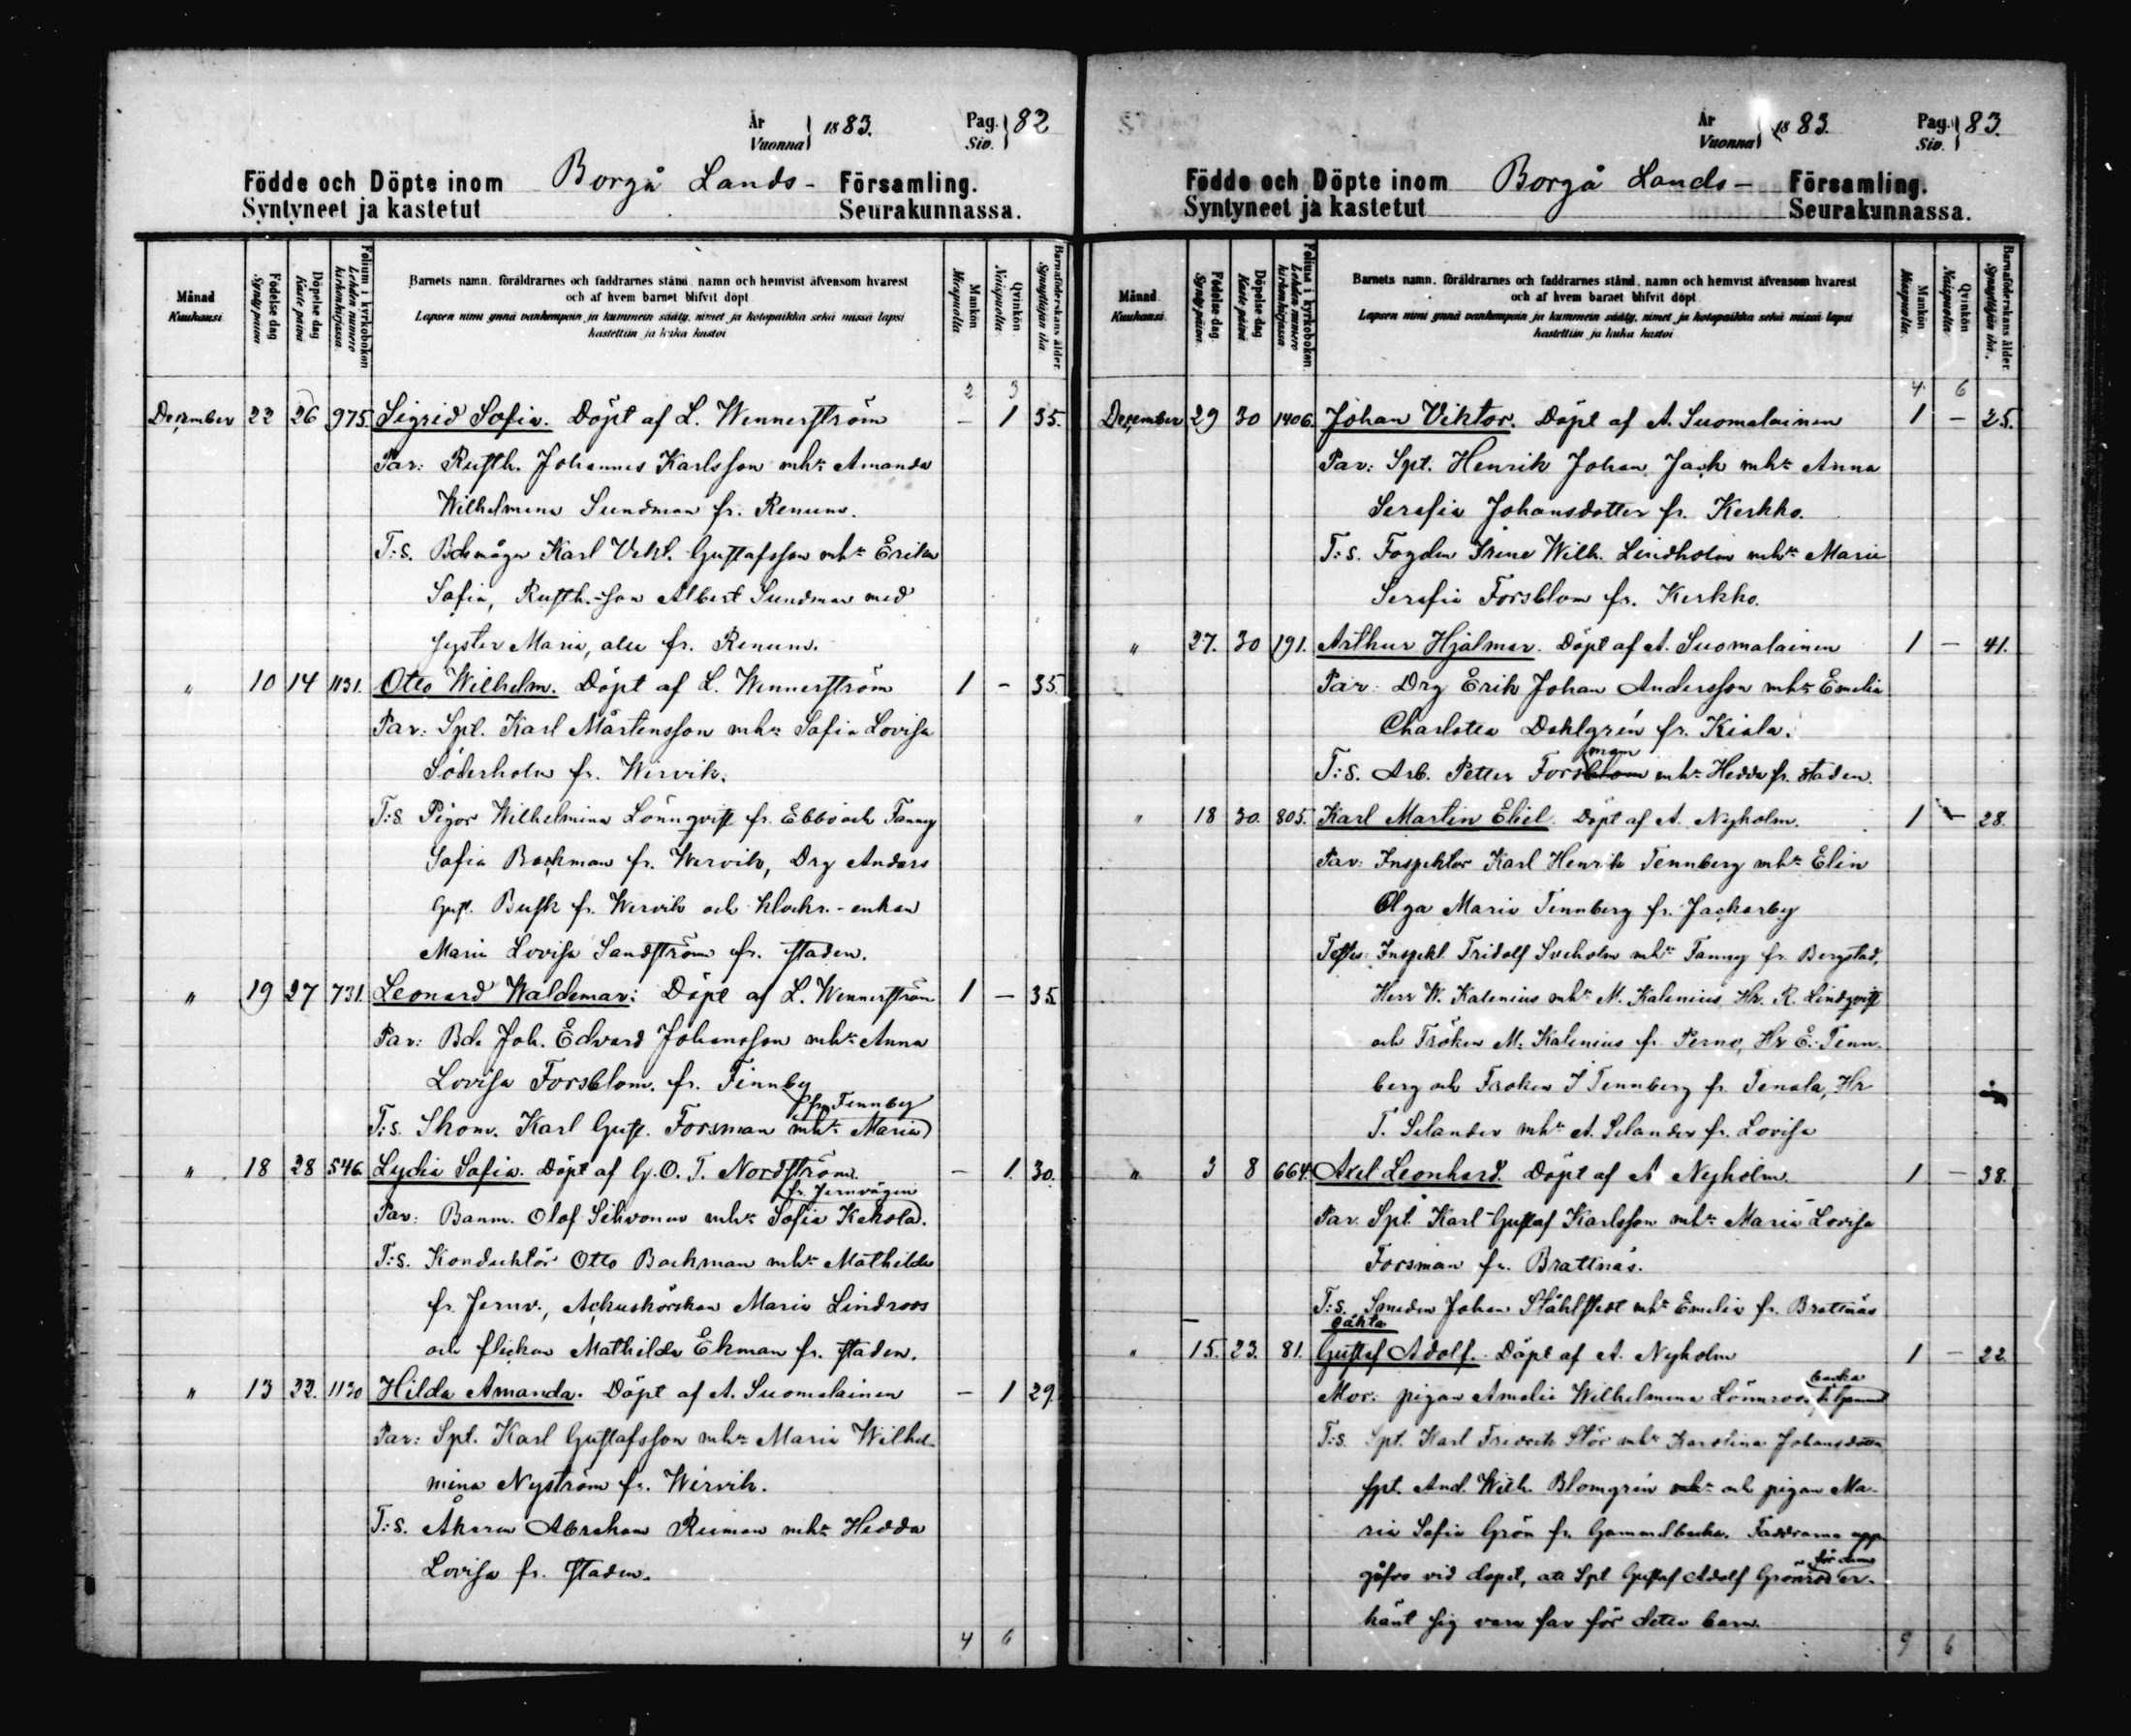 År
Vuonna } 1883.
Pag.
Siv. } 82
Födde och Döpte inom Borgå Lands- Församling.
Syntyneet ja kastetut Seurakunnassa.
Månad
Kuukausi
Födelse dag
Syntypäivä
Döpelse dag
Kastepäivä
Folium i kyrkoboken
Lehden numero kirkonkirjassa.
Barnets namn, föräldrarnes och faddrarnes stånd, namn och hemvist äfvensom hvarest
och af hvem barnet blifvit döpt.
Lapsen nimi ynnä vanhempain ja kummein sääty, nimet ja kotopaikka sekä missä lapsi
kastettiin ja kuka kastoi
Mankön
Miespuolta
Qvinkön
Naispuolta
Barnaföderskans ålder.
Synnyttäjän ikä.
2 3
December 22 26 975. Sigrid Sofia. Döpt af L. Wennerström — 1 35.
Par: Rusth. Johannes Karlsson mhr Amanda
Wilhelmina Sundman fr. Renum.
T:s. Bdemågen Karl Vikt. Gustafsson mhr Erika
Sofia, Rusth.-son Albert Sundman med
syster Maria, alla fr. Renum.
" 10 14 1131. Otto Wilhelm. Döpt af L. Wennerström 1 - 35.
Par: Spt. Karl Mårtensson mhr Sofia Lovisa
Söderholm fr. Wervik.
T:s. Pigor Wilhelmina Lönnqvist fr. Ebbo och Fanny
Sofia Backman fr. Wervik, Drg Anders
Gust. Busk fr. Wervik och klockr.-enkan
Maria Lovisa Sandström fr. staden.
" 19 27 731. Leonard Waldemar: Döpt af L. Wennerström 1 — 35.
Par: Bde Joh. Edvard Johansson mhr Anna
Lovisa Forsblom. fr. Finnby
fr. Finnby
T:s. Skom. Karl Gust. Forsman mhr Maria
" 18 28 546. Lydia Sofia. Döpt af G. O. T. Nordström. — 1. 30.
fr. Jernvägen
Par: Banm. Olof Sihvonen mhr Sofia Kekola.
T:s. Konduktör Otto Backman mhr Mathilda
fr. Jernv., Maria Lindroos
och flickan Mathilda Ekman fr. staden.
" 13 22. 1130 Hilda Amanda. Döpt af A. Suomalainen — 1 29.
Par: Spt. Karl Gustafsson mhr Maria Wilhel-
mina Nyström fr. Wervik.
T:s. Åkaren Abraham Reiman mhr Hedda
Lovisa fr. staden.
4 6
År
Vuonna } 1883.
Pag.
Siv. } 83.
Födde och Döpte inom Borgå Lands- Församling.
Syntyneet ja kastetut Seurakunnassa.
Månad
Kuukausi
Födelse dag.
Syntypäivä.
Döpelse dag
Kastepäivä
Folium i kyrkoboken.
Lehden numero kirkonkirjassa.
Barnets namn, föräldrarnes och faddrarnes stånd, namn och hemvist äfvensom hvarest
och af hvem barnet blifvit döpt.
Lapsen nimi ynnä vanhempain ja kummein sääty, nimet ja kotopaikka sekä missä lapsi
kastettiin ja kuka kastoi
Mankön
Miespuolta.
Qvinkön
Naispuolta
Barnaföderskans ålder
Synnyttäjän ikä.
4. 6
December 29 30 1406. Johan Viktor. Döpt af A. Suomalainen 1 — 25.
Par: Spt. Henrik Johan Jack mhr Anna
Serafia Johansdotter fr. Kerkko.
T:s. Fogden Wilh. Lindholm mhr Maria
Serafia Forsblom fr. Kerkko.
" 27. 30 191. Arthur Hjalmar. Döpt af A. Suomalainen 1 — 41.
Par: Drg Erik Johan Andersson mhr Emelia
Charlotta Dahlgrén fr. Kiala.
man
T:s. Arb. Petter Forsblom mhr Hedda fr. staden.
" 18 30. 805. Karl Martin Eliel. Döpt af A. Nyholm. 1 — 28.
Par: Inspektor Karl Henrik Tennberg mhr Elin
Olga Maria Tennberg fr. Jackarby
Testes: Inspekt. Fridolf Sveholm mhr Fanny fr. Bergstad,
Herr W. Kalenius mhr M. Kalenius, Hr. R. Lindqvist
och Fröken M. Kalenius fr. Perno, Hr E. Tenn-
berg och Fröken I Tennberg fr. Tenala, Hr
T. Selander mhr A. Selander fr. Lovisa
" 3 8 664. Axel Leonhard. Döpt af A Nyholm. 1 — 38.
Par. Spt. Karl Gustaf Karlsson mhr Maria Lovisa
Forsman fr. Brattnäs.
T:s. Smeden Johan Ståhlstedt mhr Emelia fr. Brattnäs
oäkta
" 15. 23. 81. Gustaf Adolf. Döpt af A. Nyholm 1 — 22.
backa
Mor: pigan Amalia Wilhelmina Lönnroos fr. Gammel
T:s. Spt. Karl Fredrik Stör mhr Karolina Johansdotter,
spt. And. Wilh. Blomgrén mhr och pigan Ma-
ria Sofia Grön fr. Gammelbacka. Faddrarna upp-
för dem
gåfvo vid dopet, att Spt Gustaf Adolf Grönroos er-
känt sig vara far för detta barn.
9 6